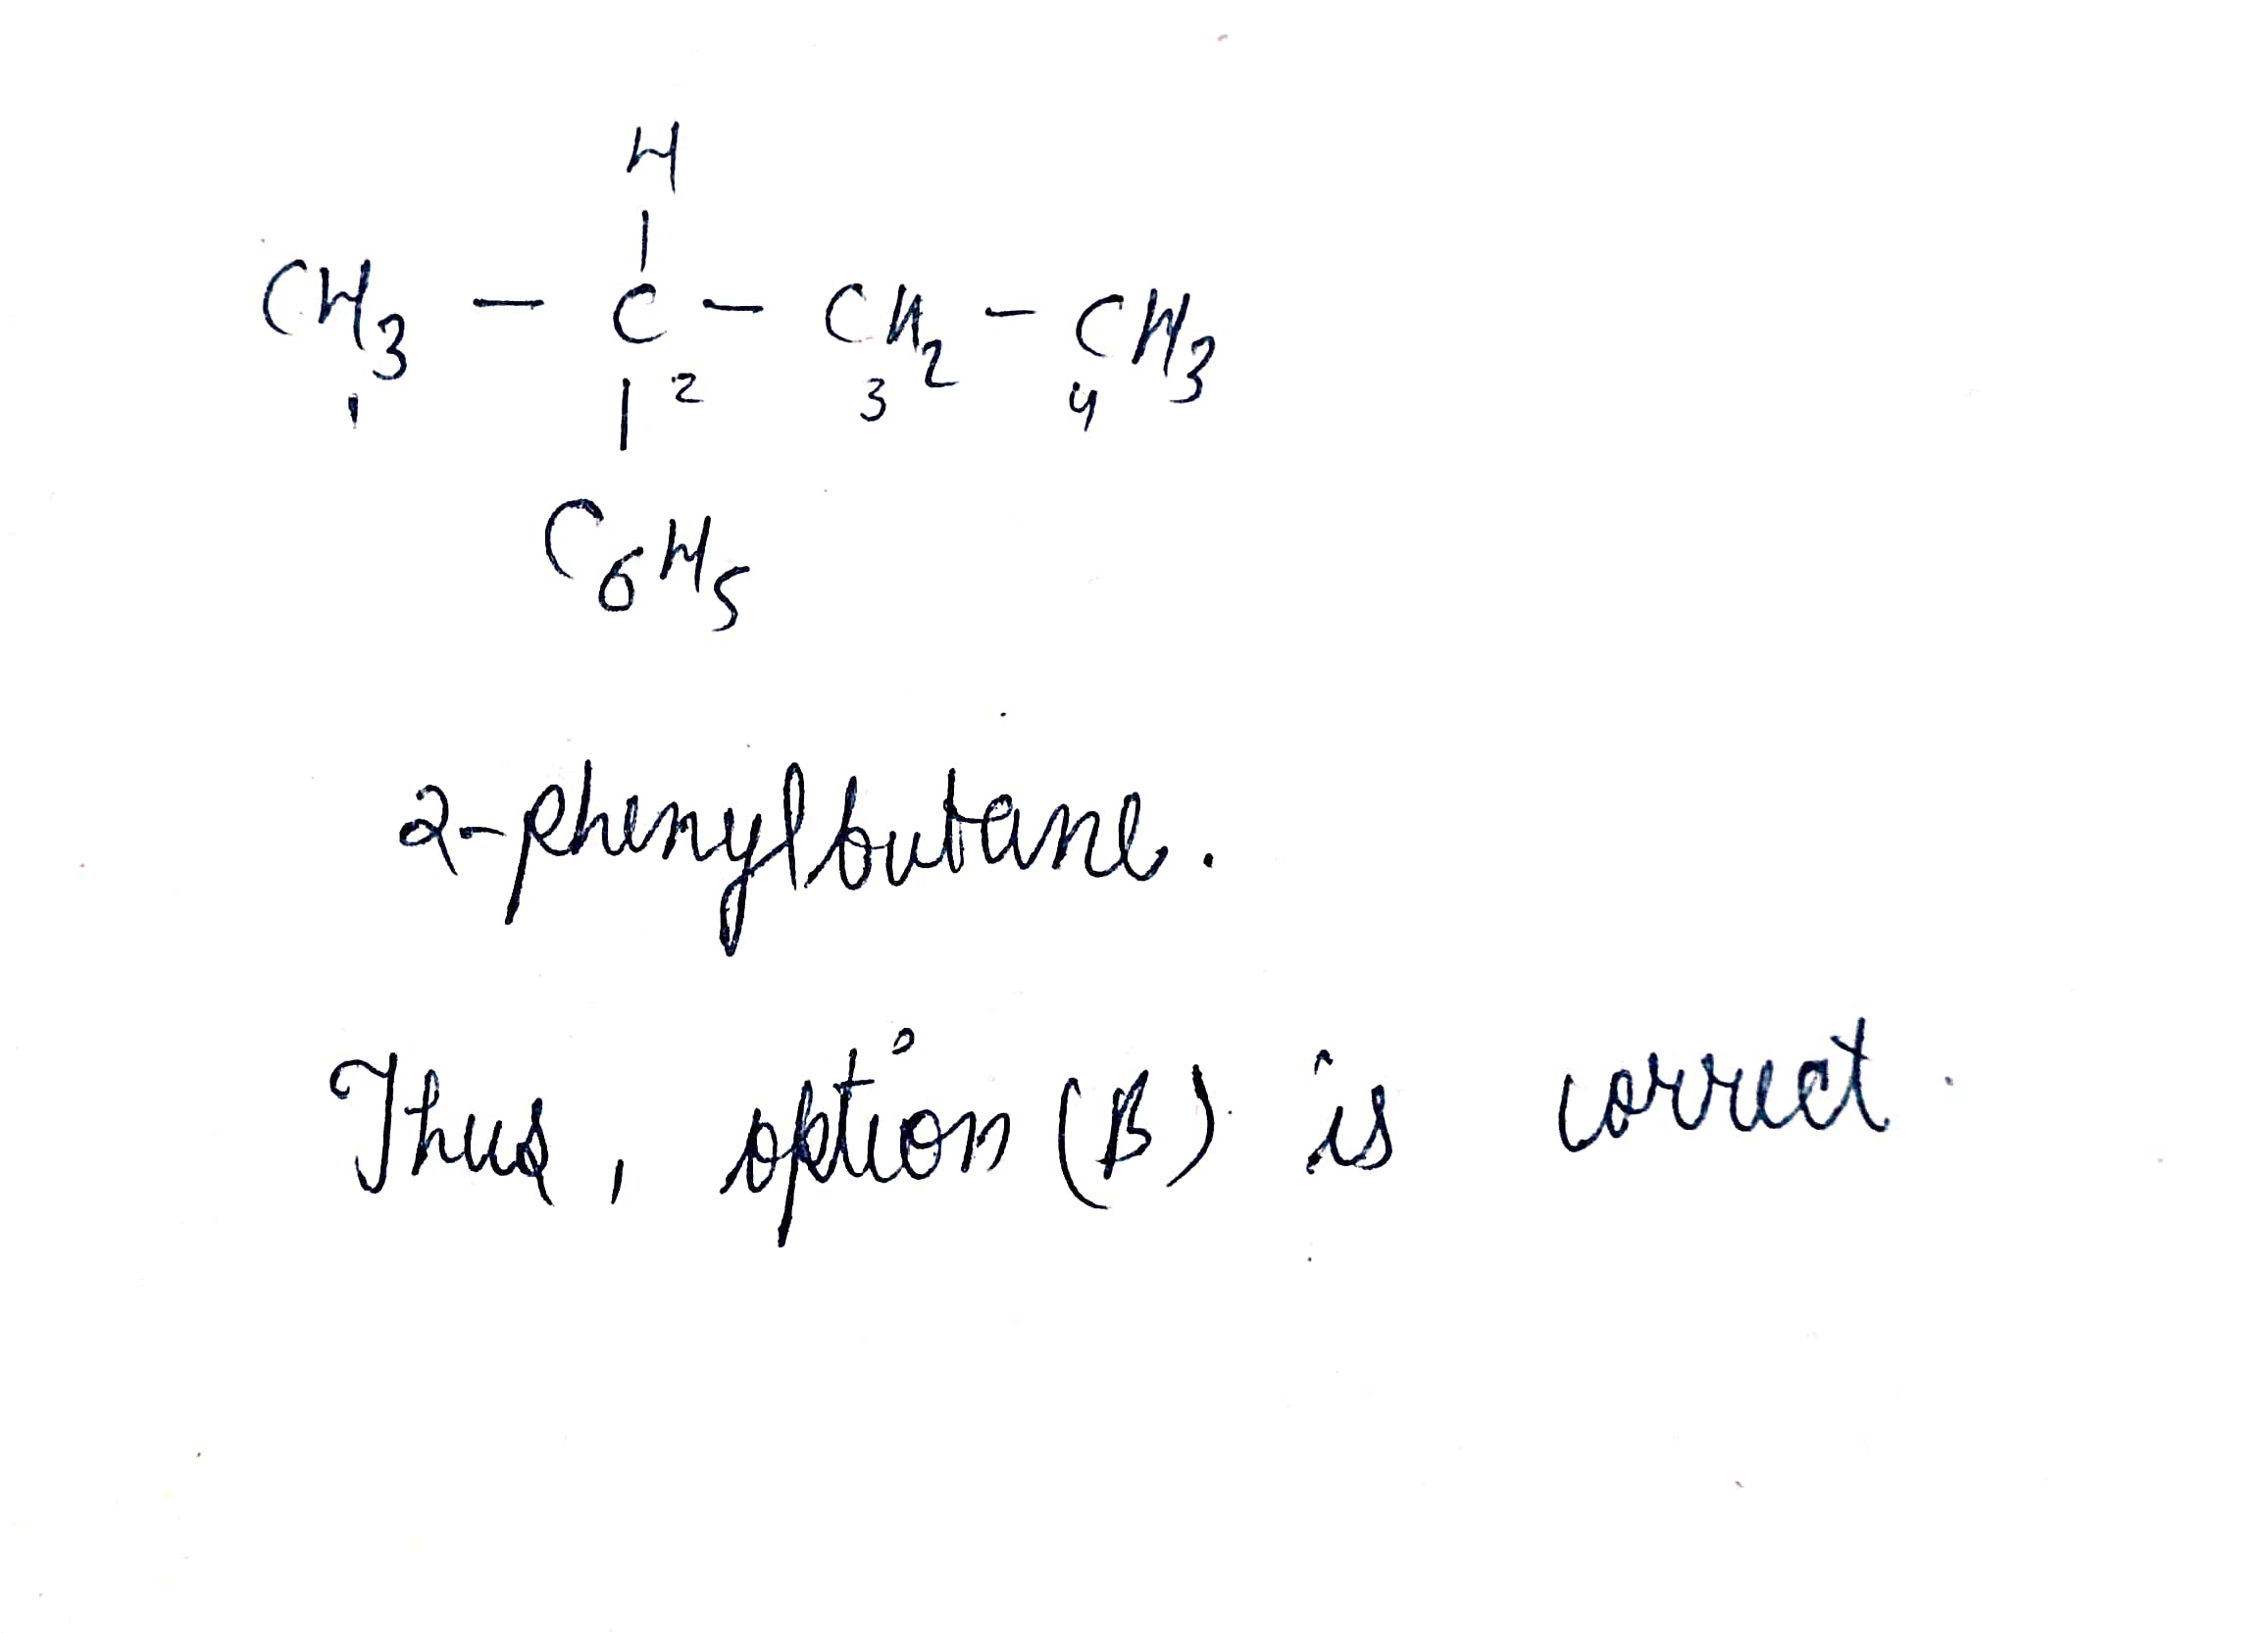 H
CH3 - C - CH2 - CH3
1 2 3 4
C6H5
2-phenylbutane.
Thus, option (B) is correct.